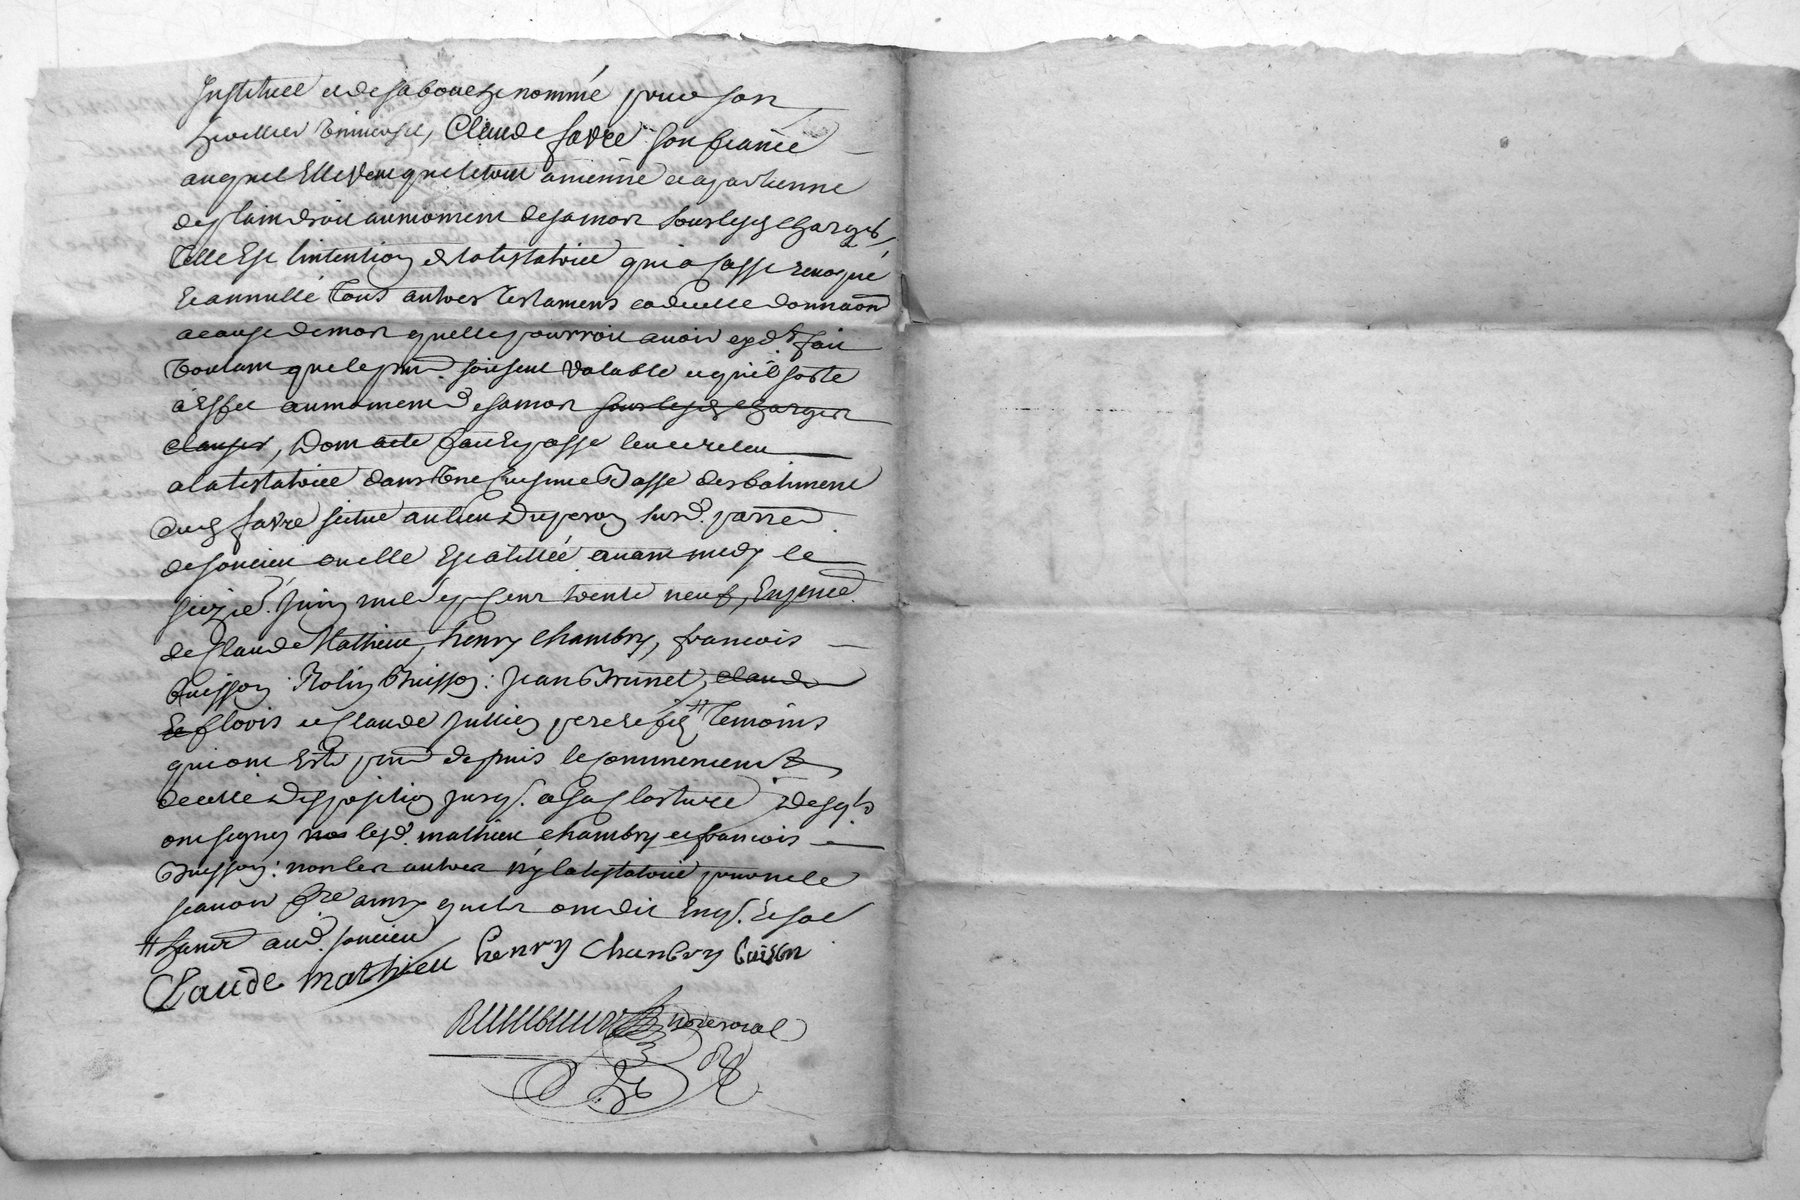 Institue et de sa bouche nommé pour son
heritier universel, Claude favre son fiancé
auquel Elle veut que le tout avienne et apartienne
de plain droit au moment de sa mort sous lesd charges
Telle Est lintention de la testatrice qui a Cassé revoqué
Et annullé Tous autres testamens codicille donnaon
a cause de mort quelle pourroit avoir cyd.t fait
voulant que le pnt. soit seul valable et quil sorte
à Effet au moment de sa mort sous lesd charges
clauses, Dont acte fait et passé leu et releu
a la testatrice dans une Cuisine Basse des batiment
dud favre situé au lieu du peron surd. parre.
de soucieu ou elle Est alittée avant midy le
sizie. Juin mil sept Cent trente neuf, En pnce
de Claude Mathieu, henry Chambry, francois
Buisson Rolin Buisson: Jean Brunet, claude
Et flovis et Claude Jullien pere et fils # Temoins
qui ont Esté pnt depuis le commencemt
de cette disposition jusq. a sa Closture Desqls
ont signés nos lesd. mathieu chambry et francois
Buisson: non les autres ny la testatrice pour ne le
scavoir fre ainsy quils ont dit Enq. Et som
# hants aud. soucieu
Claude mathieu henry Chanbry buison
nore royal